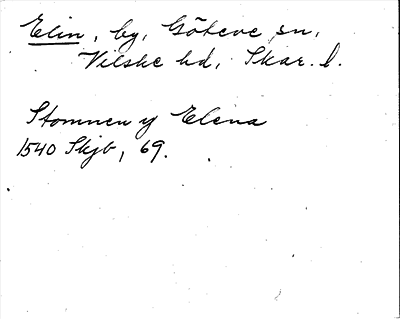 Elin, by, Göteve sn,
Vilske hd, Skar. l.
Stomnen y Elena
1540 Skjb, 69.